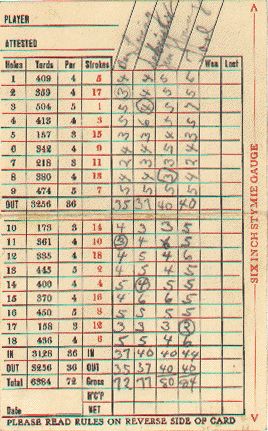 PLAYER
ATTESTED
Holes Yards Par Strokes Won Lost
1 409 4 5 4 4 5 5
2 359 4 17 3 4 5 5
3 504 5 1 5 4 5 7
4 413 4 3 5 6 5 5
5 157 3 15 3 3 4 3
6 342 4 9 4 4
7 218 3 11 2 3
8 380 4 13 4 4 3 4
9 474 5 7 5 5
OUT 3256 36 35 37 40 40
10 173 3 14 4 3 3 5
11 361 4 10 3 4 5
12 335 4 18 4 5 4 6
13 445 5 2 4 5 4 5
14 400 4 4 5 4 5 5
15 370 4 16 4 6 6 5
16 450 5 8 5 5
17 158 3 12 3 3 3 3
18 436 4 6 5 5 4 6
IN 3128 36 IN 37 40 40 44
OUT 3256 36 OUT 35 37 40 40
Total 6384 72 Gross 72 77 80 84
H'C'P
Date NET
PLEASE READ RULES ON REVERSE SIDE OF CARD
A SIX INCH STYMIE GAUGE V